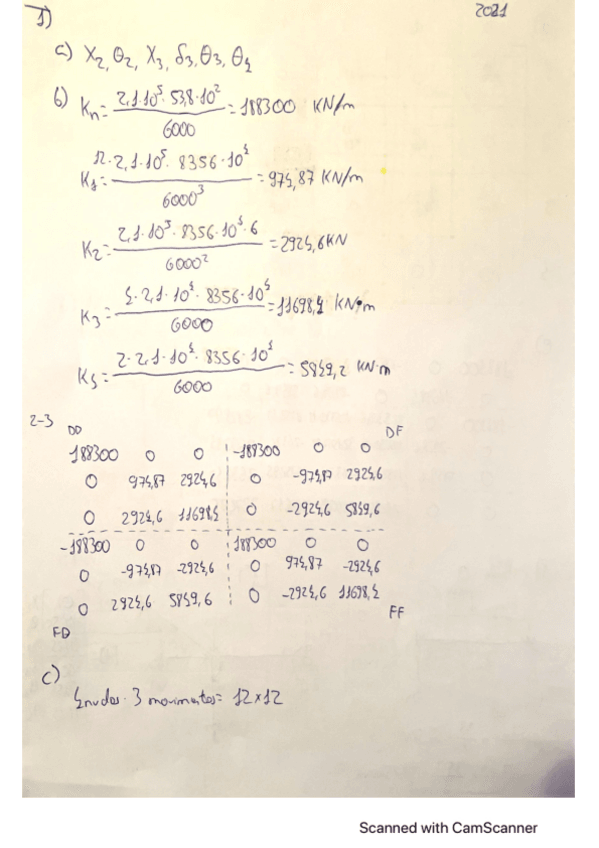 1)
2021
a) X₂, θ₂, X₃, δ₃, θ₃, θ₄
b) Kn = 2,1·10⁵·53,8·10² / 6000 = 188300 KN/m
K₁ = 12·2,1·10⁵·8356·10⁴ / 6000³ = 974,87 KN/m
K₂ = 2,1·10⁵·8356·10⁴·6 / 6000² = 2924,6 KN
K₃ = 4·2,1·10⁵·8356·10⁴ / 6000 = 11698,4 KN·m
K₄ = 2·2,1·10⁵·8356·10⁴ / 6000 = 5849,2 KN·m
2-3
DD DF
188300 0 0 -188300 0 0
0 974,87 2924,6 0 -974,87 2924,6
0 2924,6 11698,4 0 -2924,6 5849,6
-188300 0 0 188300 0 0
0 -974,87 -2924,6 0 974,87 -2924,6
0 2924,6 5849,6 0 -2924,6 11698,4
FD FF
c)
4 nudos · 3 movimientos = 12×12
Scanned with CamScanner